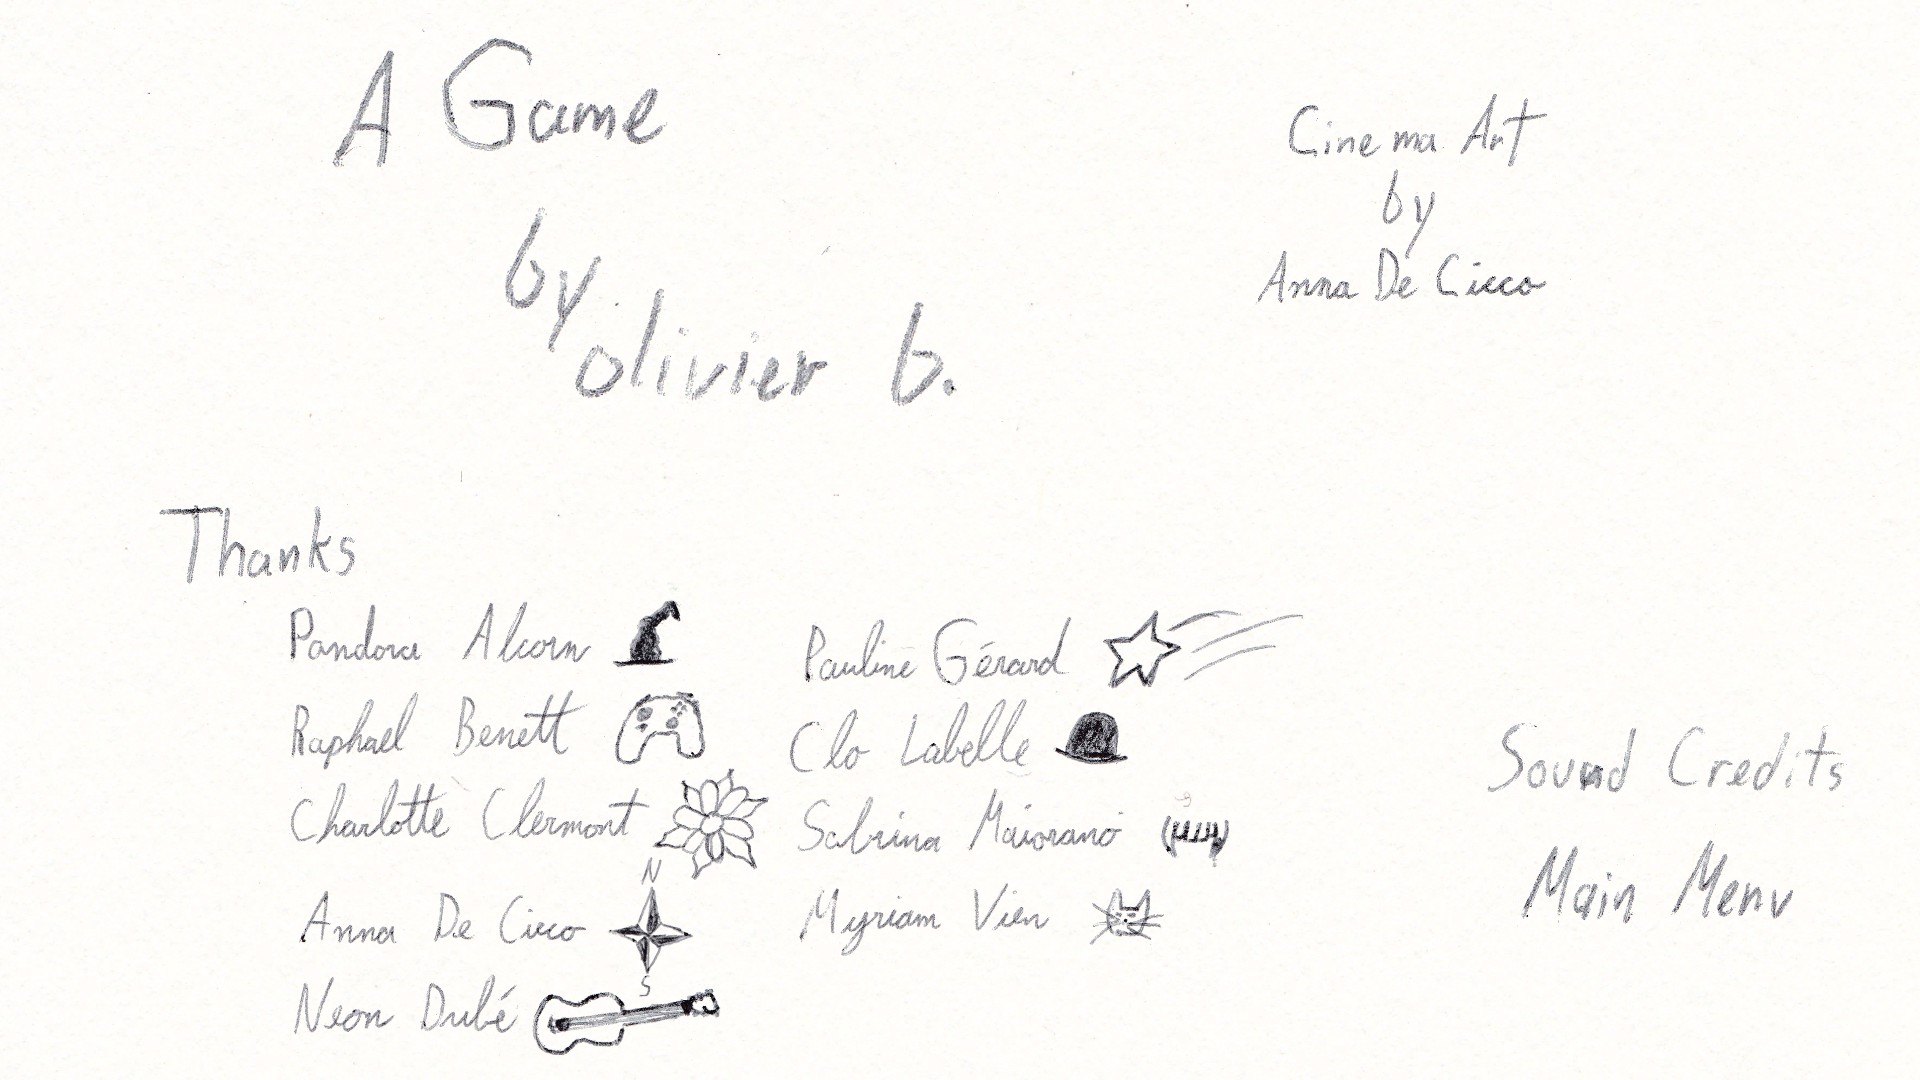 A Game
by
olivier b.
Cinema Art
by
Anna De Cicco
Thanks
Pandora Alcorn
Raphael Benett
Charlotte Clermont
N
Anna De Cicco
S
Neon Dubé
Pauline Gérard
Clo Labelle
Sabrina Maiorano
Myriam Vien
Sound Credits
Main Menu